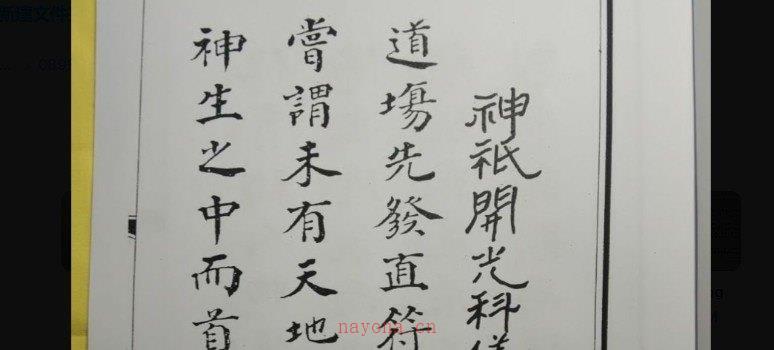 神祇開光科儀
道塲先發直符
嘗謂未有天地
神生之中而首
nayona.cn